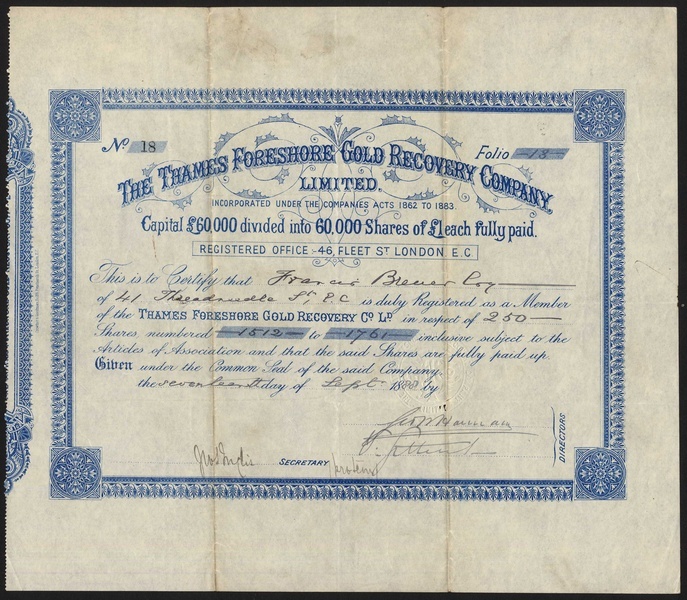 No 18
Folio 13
THE THAMES FORESHORE GOLD RECOVERY COMPANY,
LIMITED.
INCORPORATED UNDER THE COMPANIES ACTS 1862 TO 1883.
Capital £60,000 divided into 60,000 Shares of £1 each fully paid.
REGISTERED OFFICE - 46, FLEET ST LONDON E.C
This is to Certify that Francis Brewer Esq
of 41 Threadneedle St E C is duly Registered as a Member
of the THAMES FORESHORE GOLD RECOVERY CO LD in respect of 250
Shares numbered 1512 to 1761 inclusive subject to the
Articles of Association and that the said Shares are fully paid up.
Given under the Common Seal of the said Company,
the seventeenth day of Sept 188 by
DIRECTORS
SECRETARY